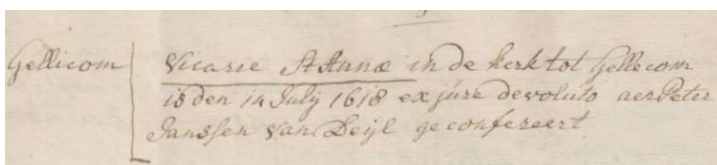 Gellicom Vicarie St Annæ in de kerk tot Gellecom
is den 14 Julij 1618 ex jure devoluto aen Peter
Janssen van Deijl geconfereert